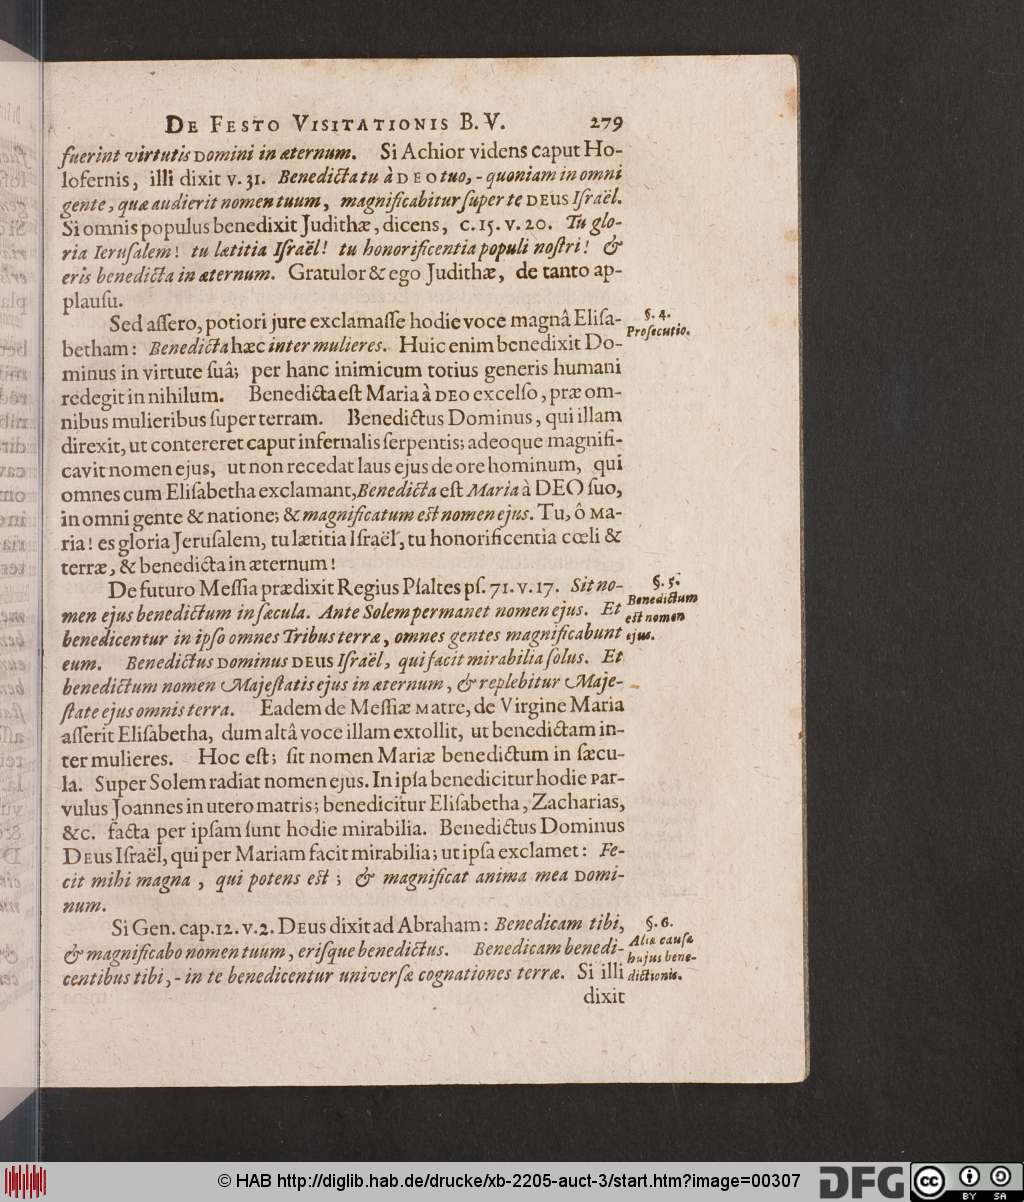 DE FESTO VISITATIONIS B. V. 279
fuerint virtutis DOMINI in æternum. Si Achior videns caput Ho-
lofernis, illi dixit v. 31. Benedicta tu à DEO tuo, - quoniam in omni
gente, quæ audierit nomen tuum, magnificabitur ſuper te DEUS Iſraël.
Si omnis populus benedixit Judithæ, dicens, c. 15. v. 20. Tu glo-
ria Ieruſalem! tu lætitia Iſraël! tu honorificentia populi noſtri! &
eris benedicta in æternum. Gratulor & ego Judithæ, de tanto ap-
plauſu.
Sed aſſero, potiori jure exclamaſſe hodie voce magnâ Eliſa-
§. 4.
Proſecutio.
betham: Benedicta hæc inter mulieres. Huic enim benedixit Do-
minus in virtute ſuâ; per hanc inimicum totius generis humani
redegit in nihilum. Benedicta eſt Maria à DEO excelſo, præ om-
nibus mulieribus ſuper terram. Benedictus Dominus, qui illam
direxit, ut contereret caput infernalis ſerpentis; adeoque magnifi-
cavit nomen ejus, ut non recedat laus ejus de ore hominum, qui
omnes cum Eliſabetha exclamant, Benedicta eſt Maria à DEO ſuo,
in omni gente & natione; & magnificatum eſt nomen ejus. Tu, ô MA-
ria! es gloria Jeruſalem, tu lætitia Iſraël, tu honorificentia cœli &
terræ, & benedicta in æternum!
De futuro Meſſia prædixit Regius Pſaltes pſ. 71. v. 17. Sit no-
§. 5.
Benedictum
eſt nomen
ejus.
men ejus benedictum in ſæcula. Ante Solem permanet nomen ejus. Et
benedicentur in ipſo omnes Tribus terræ, omnes gentes magnificabunt
eum. Benedictus DOMINUS DEUS Iſraël, qui facit mirabilia ſolus. Et
benedictum nomen Majeſtatis ejus in æternum, & replebitur Maje-
ſtate ejus omnis terra. Eadem de Meſſiæ MATRE, de Virgine Maria
aſſerit Eliſabetha, dum altâ voce illam extollit, ut benedictam in-
ter mulieres. Hoc eſt; ſit nomen Mariæ benedictum in ſæcu-
la. Super Solem radiat nomen ejus. In ipſa benedicitur hodie PAR-
vulus Joannes in utero matris; benedicitur Eliſabetha, Zacharias,
&c. facta per ipſam ſunt hodie mirabilia. Benedictus Dominus
DEUS Iſraël, qui per Mariam facit mirabilia; ut ipſa exclamet: Fe-
cit mihi magna, qui potens eſt; & magnificat anima mea DOMI-
num.
Si Gen. cap. 12. v. 2. DEUS dixit ad Abraham: Benedicam tibi,
§. 6.
Alia cauſa
hujus bene-
dictionis.
& magnificabo nomen tuum, eriſque benedictus. Benedicam benedi-
centibus tibi, - in te benedicentur univerſæ cognationes terræ. Si illi
dixit
© HAB http://diglib.hab.de/drucke/xb-2205-auct-3/start.htm?image=00307
DFG
cc BY SA